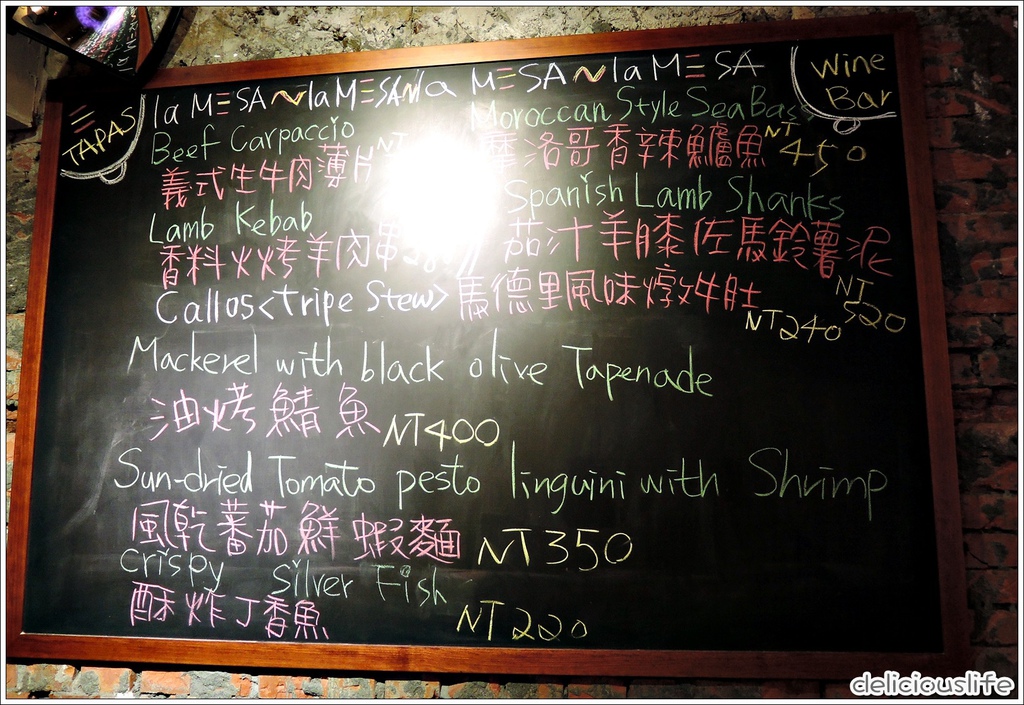 TAPAS
la MESA la MESA la MESA la MESA
Wine
Bar
Beef Carpaccio
義式生牛肉薄片 NT
Moroccan Style Sea Bas
摩洛哥香辣鱸魚 NT 450
Lamb Kebab
香料火烤羊肉串
Spanish Lamb Shanks
茄汁羊膝佐馬鈴薯泥
NT 520
Callos <Tripe Stew> 馬德里風味燉牛肚
NT240
Mackerel with black olive Tapenade
油烤鯖魚 NT400
Sun-dried Tomato pesto linguini with Shrimp
風乾蕃茄鮮蝦麵 NT350
crispy Silver Fish
酥炸丁香魚 NT 220
deliciouslife